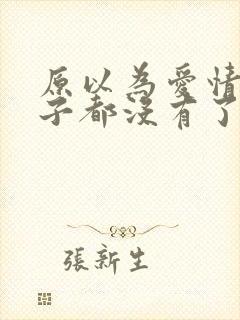 原以為愛情
子都沒有了
張新生